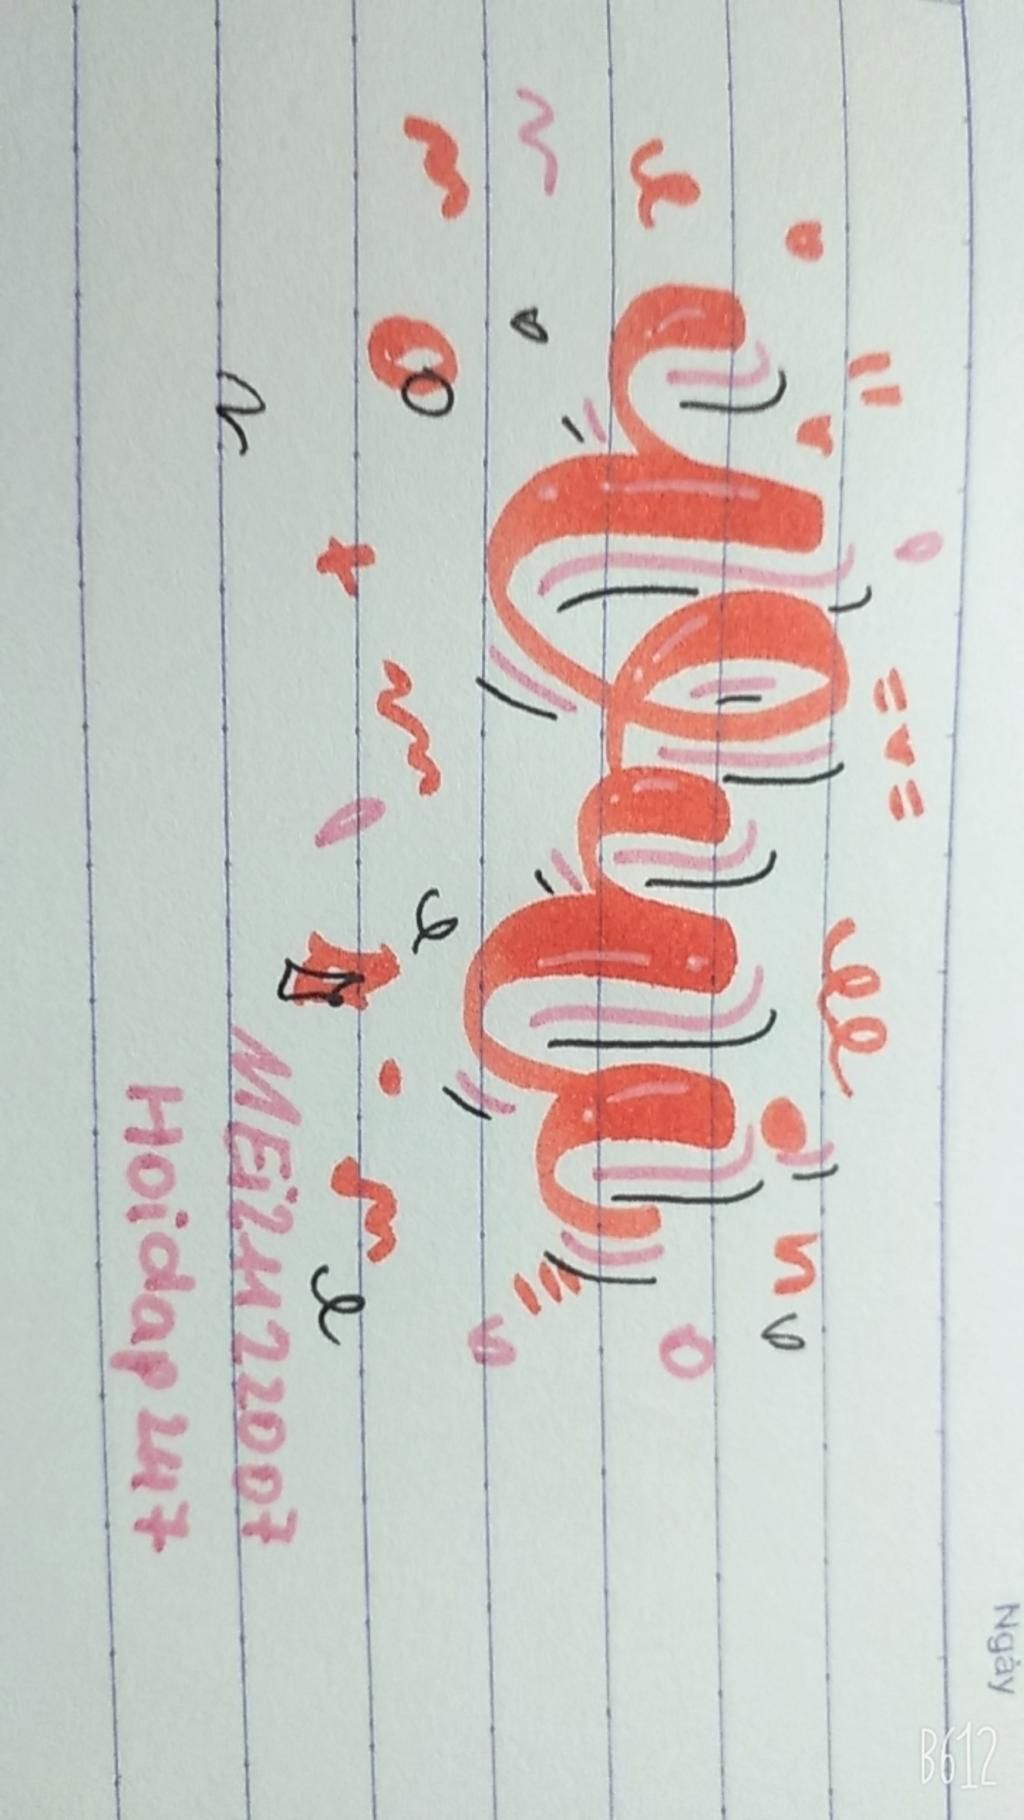 Ngày
MEi24122007
Hoidap247
B612